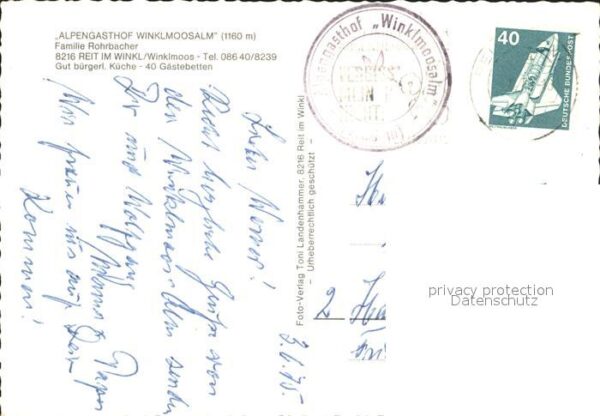 „ALPENGASTHOF WINKLMOOSALM" (1160 m)
Familie Rohrbacher
8216 REIT IM WINKL/Winklmoos - Tel. 08640/8239
Gut bürgerl. Küche - 40 Gästebetten
Alpengasthof „Winklmoosalm"
40
DEUTSCHE BUNDESPOST
Foto-Verlag Toni Landenhammer, 8216 Reit im Winkl
– Urheberrechtlich geschützt –
3.6.75
Lieber Werner!
Recht herzliche Grüße von
der Winklmoos-Alm senden
Dir und Wolfgang
Mama & Papa
Wir freuen uns auf Dein
Kommen!
2 Ha
privacy protection
Datenschutz